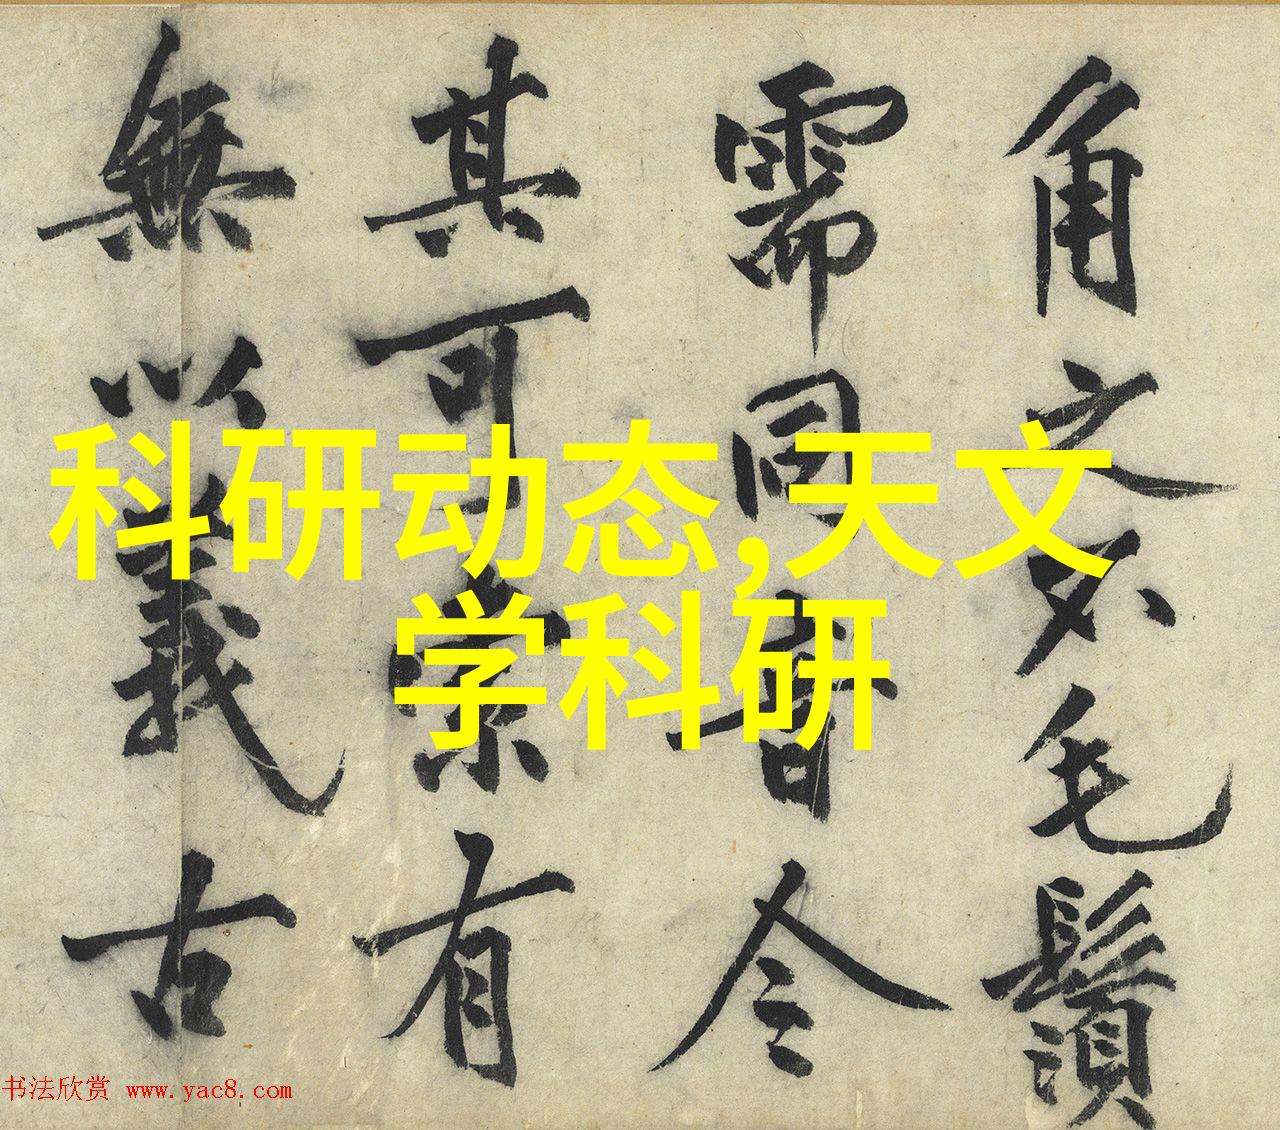 角之不毛鬚
需同音今
其可有
無以義古
科研动态,天文
学科研
书法欣赏 www.yac8.com